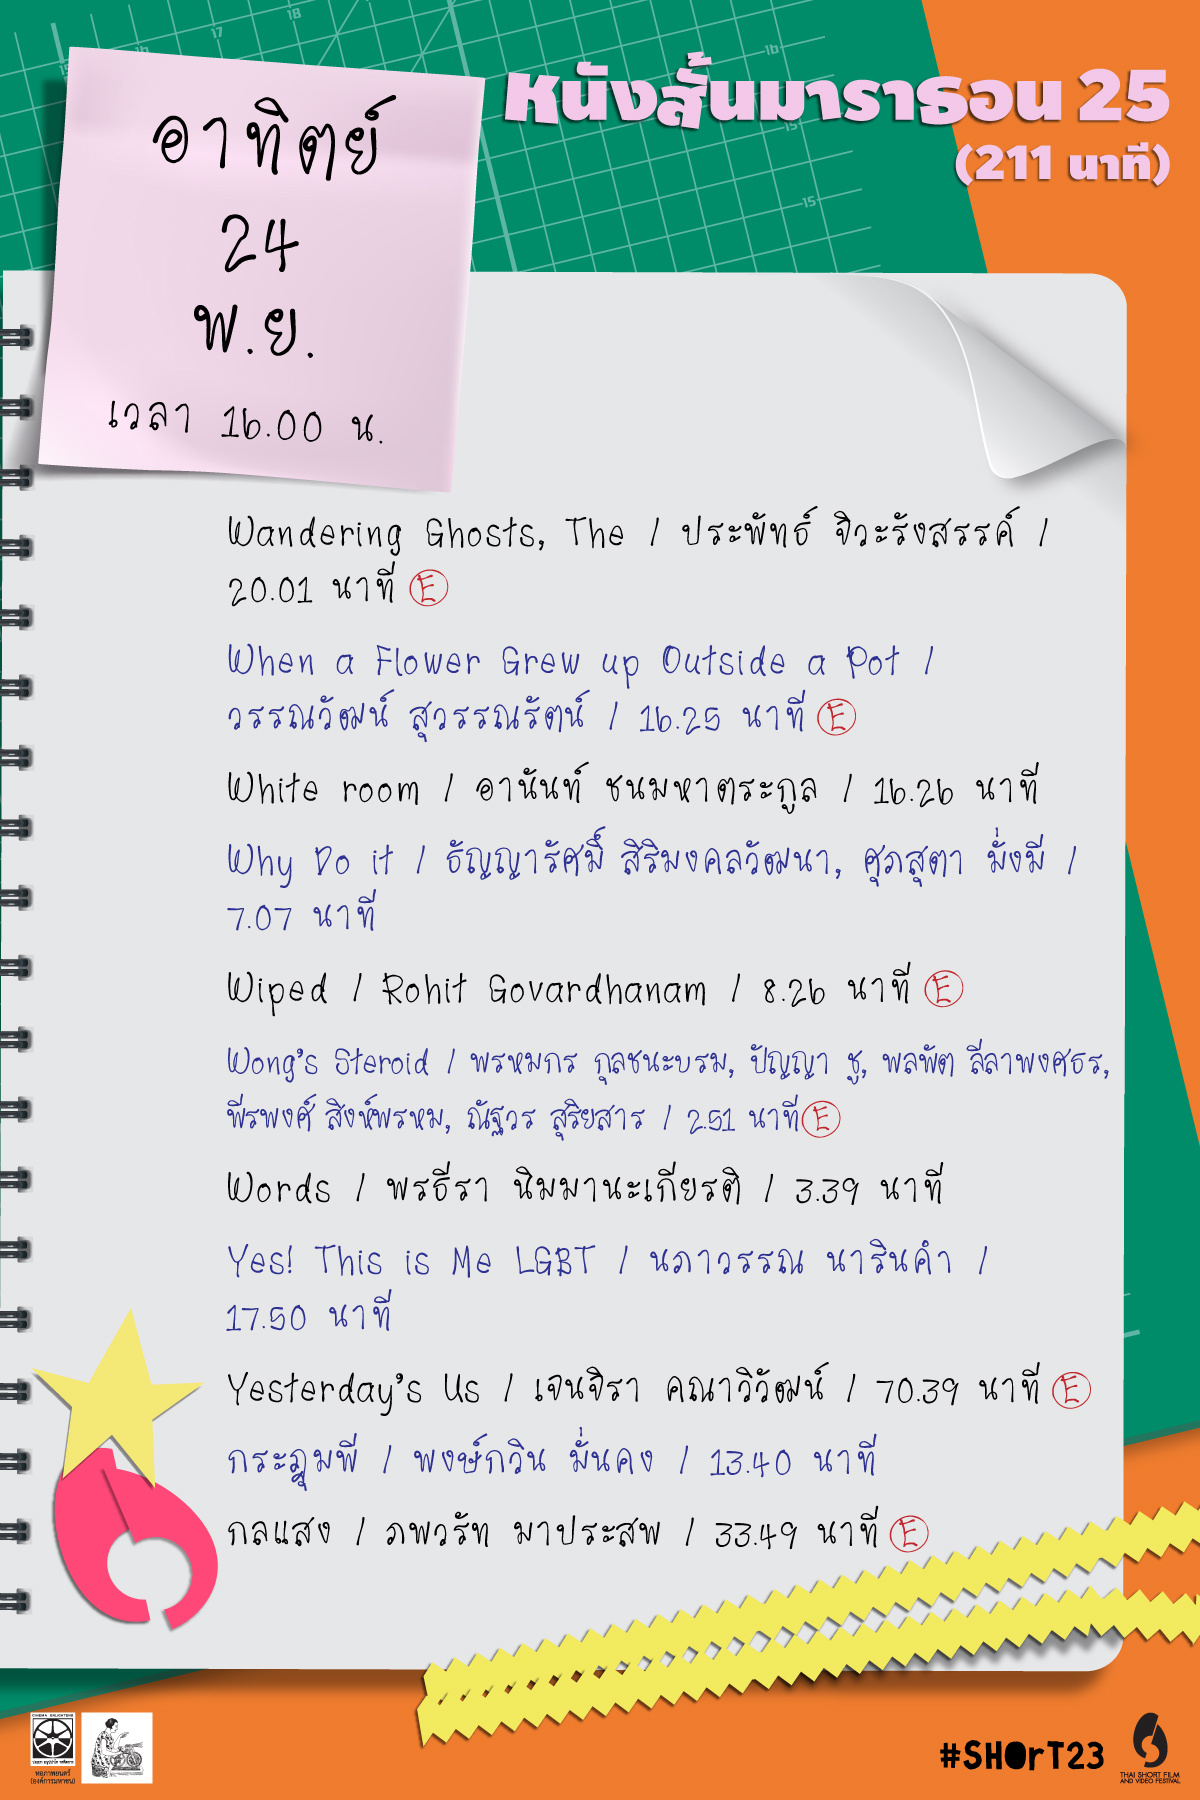 หนังสั้นมาราธอน 25
(211 นาที)
อาทิตย์
24
พ.ย.
เวลา 16.00 น.
Wandering Ghosts, The / ประพัทธ์ จิวะรังสรรค์ /
20.01 นาที E
When a Flower Grew up Outside a Pot /
วรรณวัฒน์ สุวรรณรัตน์ / 16.25 นาที E
White room / อานันท์ ชนมหาตระกูล / 16.26 นาที
Why Do it / ธัญญารัศมิ์ สิริมงคลวัฒนา, ศุภสุตา มั่งมี /
7.07 นาที
Wiped / Rohit Govardhanam / 8.26 นาที E
Wong's Steroid / พรหมกร กุลชนะบรม, ปัญญา ชู, พลพัต ลีลาพงศธร,
พีรพงศ์ สิงห์พรหม, ณัฐวร สุริยสาร / 2.51 นาที E
Words / พรธีรา นิมมานะเกียรติ / 3.39 นาที
Yes! This is Me LGBT / นภาวรรณ นารินคำ /
17.50 นาที
Yesterday's Us / เจนจิรา คณาวิวัฒน์ / 70.39 นาที E
กระฎุมพี / พงษ์กวิน มั่นคง / 13.40 นาที
กลแสง / ภพวรัท มาประสพ / 33.49 นาที E
CINEMA ENLIGHTENS
หอภาพยนตร์
(องค์การมหาชน)
#SHOrT23
THAI SHORT FILM
AND VIDEO FESTIVAL